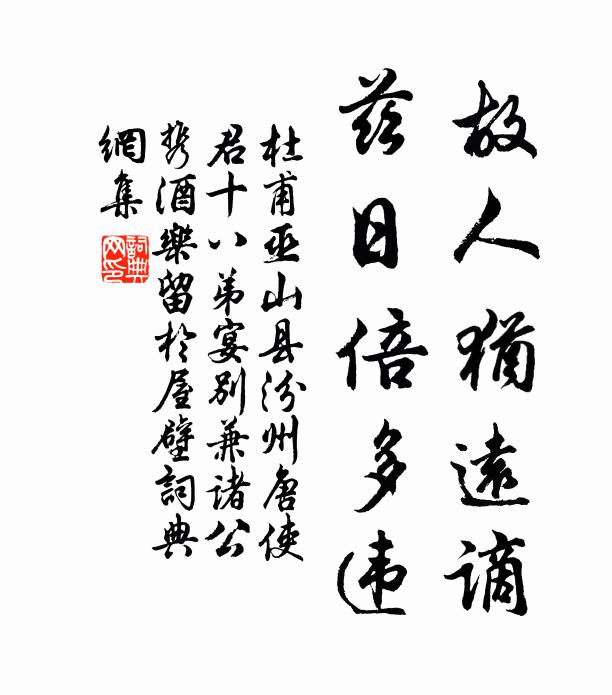 故人猶遠謫
茲日倍多违
杜甫巫山县汾州唐使
君十八弟宴别兼諸公
携酒樂留於屋壁詞典
網集
詞典
网印